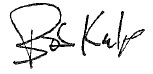 Bob Kulp